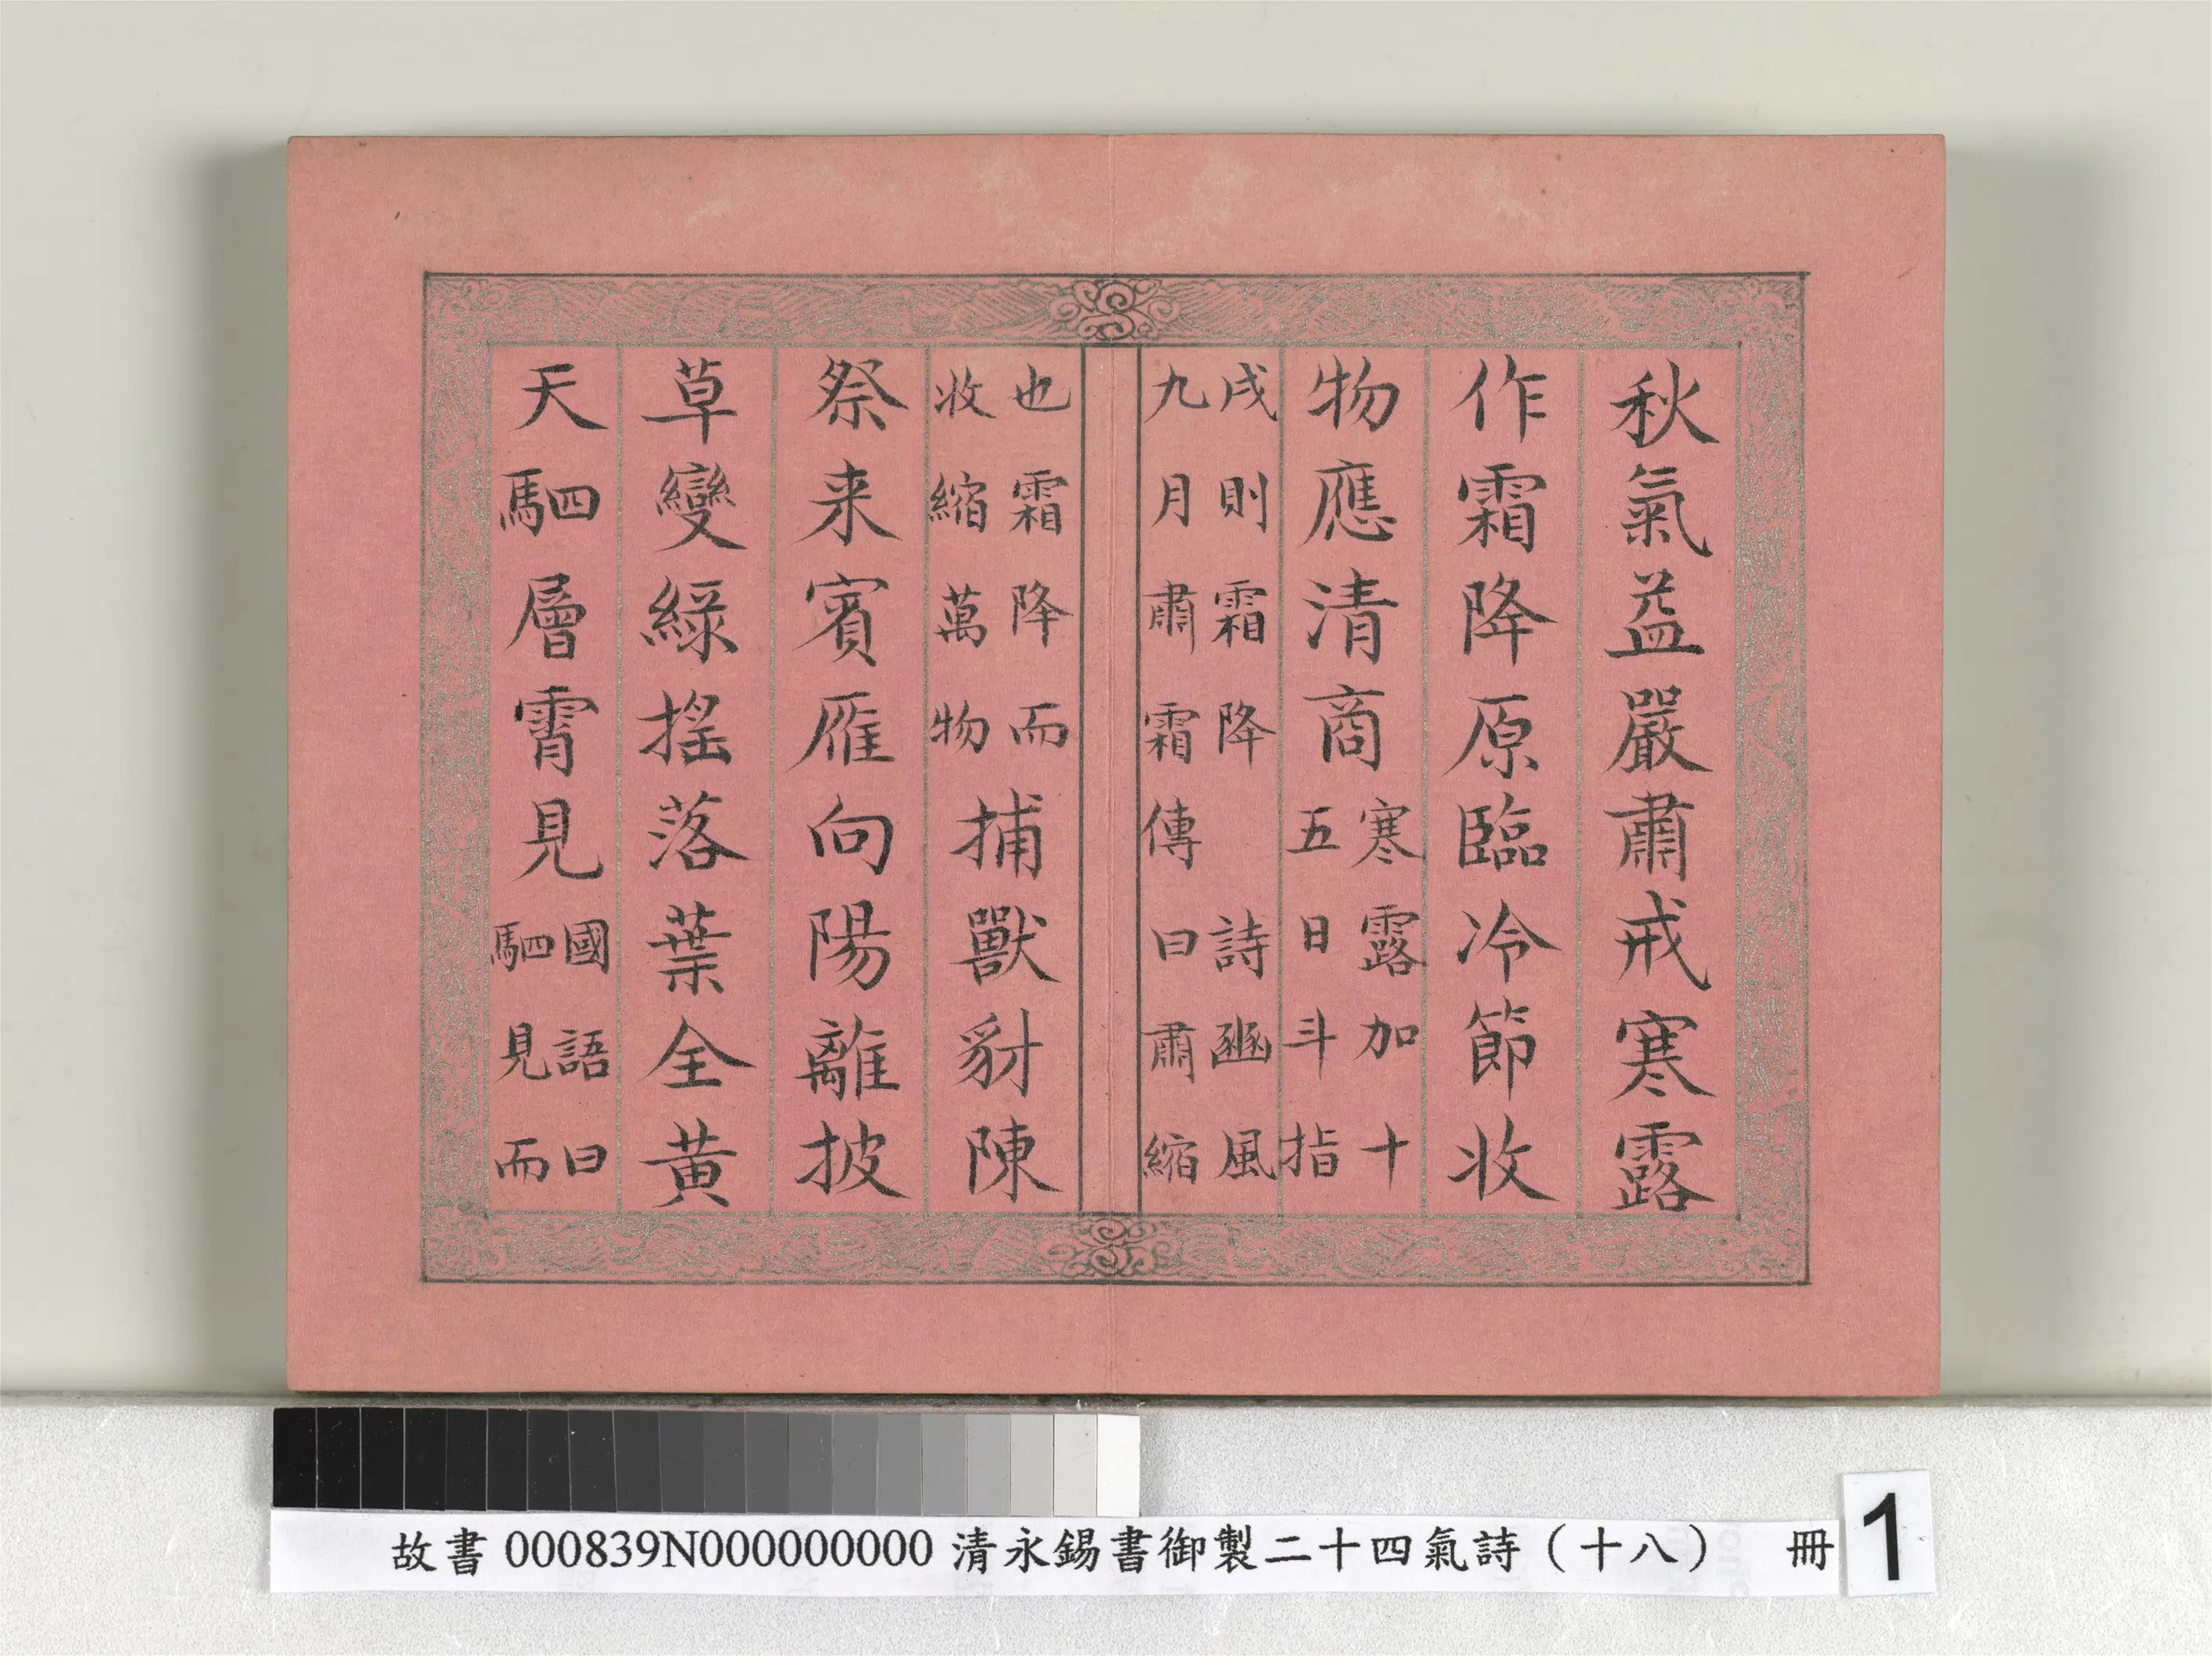 秋氣益嚴肅戒寒露
作霜降原臨冷節收
物應清商寒露加十
五日斗指
戌則霜降
詩豳風
九月肅霜傳曰肅縮
也霜降而
收縮萬物
捕獸豺陳
祭来賓雁向陽離披
草變綠搖落葉全黃
天駟層霄見國語曰
駟見而
故書 000839N000000000 清永錫書御製二十四氣詩（十八） 冊
1